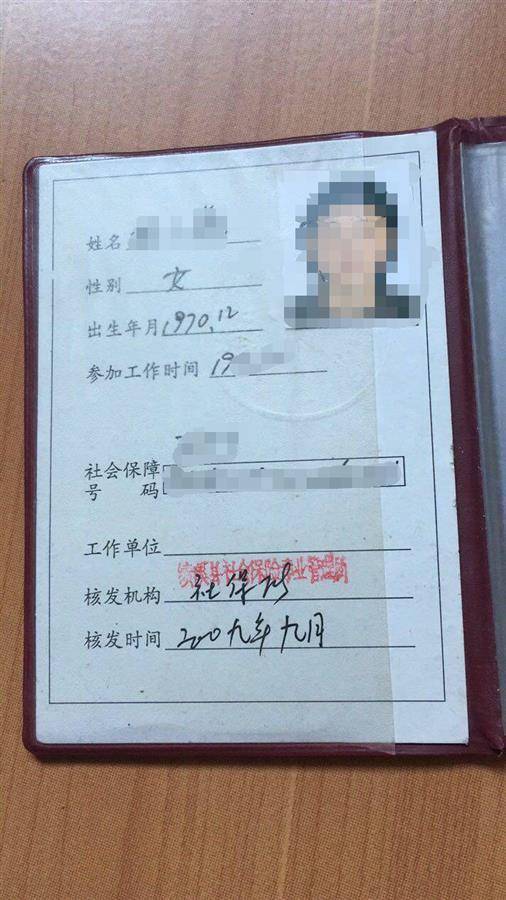 姓名
性别 女
出生年月 1970.12
参加工作时间 19
社会保障
号 码
工作单位
县社会保险事业管理
核发机构 社保所
核发时间 2009年九月